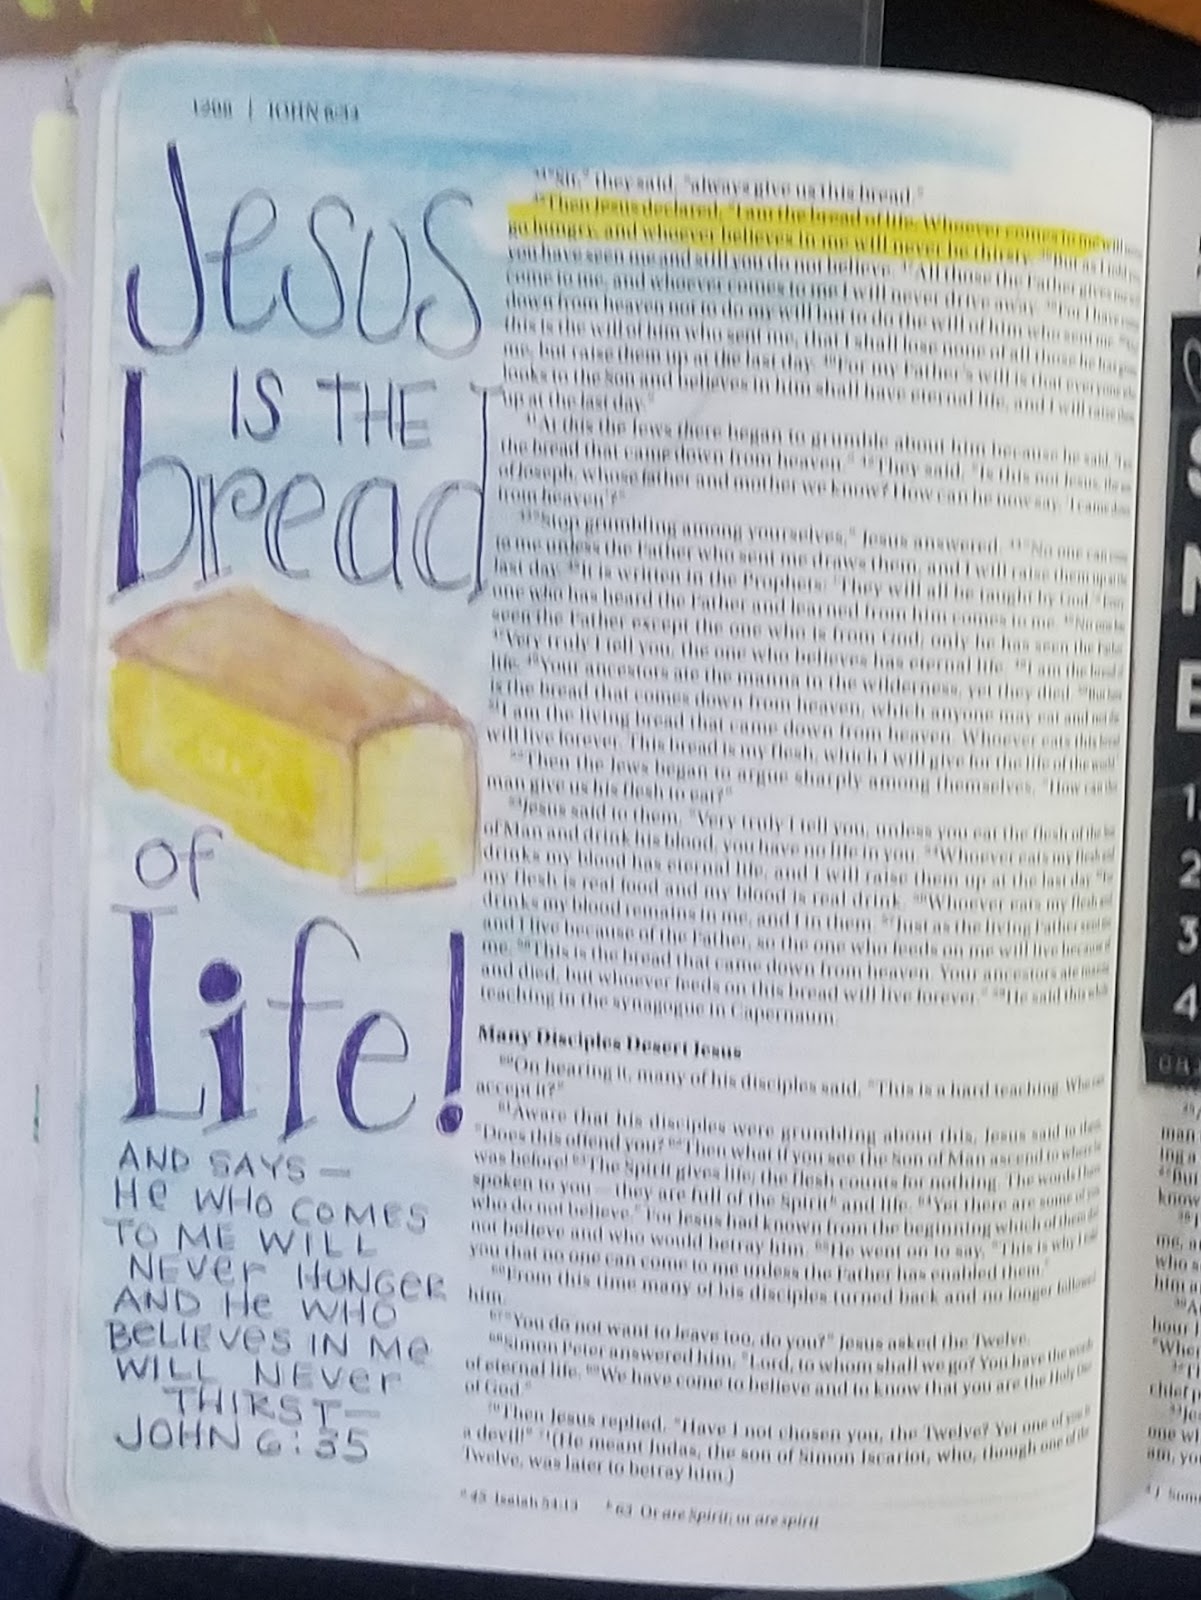 JOHN 6:34
Jesus
IS THE
bread
of
Life!
AND SAYS —
He WHO COMES
TO ME WILL
NEVer HUNGER
AND He WHO
BeLIEVes IN Me
WILL NEVer
THIRST —
JOHN 6:35
"Sir," they said, "always give us this bread."
Then Jesus declared, "I am the bread of life. Whoever comes to me will
go hungry, and whoever believes in me will never be thirsty. But as I told
you have seen me and still you do not believe. 37All those the Father gives me
come to me, and whoever comes to me I will never drive away. 38For I have
down from heaven not to do my will but to do the will of him who sent me.
this is the will of him who sent me, that I shall lose none of all those he has
me, but raise them up at the last day. 40For my Father's will is that everyone
looks to the Son and believes in him shall have eternal life, and I will raise
up at the last day."
41At this the Jews there began to grumble about him because he said,
the bread that came down from heaven." 42They said, "Is this not Jesus, the
of Joseph, whose father and mother we know? How can he now say, 'I came
from heaven'?"
43"Stop grumbling among yourselves," Jesus answered. 44"No one can
to me unless the Father who sent me draws them, and I will raise them up
last day. 45It is written in the Prophets: 'They will all be taught by God.'
one who has heard the Father and learned from him comes to me. 46No one
seen the Father except the one who is from God; only he has seen the
47Very truly I tell you, the one who believes has eternal life. 48I am the bread
life. 49Your ancestors ate the manna in the wilderness, yet they died.
is the bread that comes down from heaven, which anyone may eat and not
51I am the living bread that came down from heaven. Whoever eats this
will live forever. This bread is my flesh, which I will give for the life of the world."
52Then the Jews began to argue sharply among themselves, "How can
man give us his flesh to eat?"
53Jesus said to them, "Very truly I tell you, unless you eat the flesh of the
of Man and drink his blood, you have no life in you. 54Whoever eats my flesh
drinks my blood has eternal life, and I will raise them up at the last day.
my flesh is real food and my blood is real drink. 56Whoever eats my flesh
drinks my blood remains in me, and I in them. 57Just as the living Father
and I live because of the Father, so the one who feeds on me will live because
me. 58This is the bread that came down from heaven. Your ancestors ate
and died, but whoever feeds on this bread will live forever." 59He said this
teaching in the synagogue in Capernaum.
Many Disciples Desert Jesus
60On hearing it, many of his disciples said, "This is a hard teaching. Who can
accept it?"
61Aware that his disciples were grumbling about this, Jesus said to
"Does this offend you? 62Then what if you see the Son of Man ascend to where
was before! 63The Spirit gives life; the flesh counts for nothing. The words I
spoken to you — they are full of the Spirit and life. 64Yet there are some of
who do not believe." For Jesus had known from the beginning which of them
not believe and who would betray him. 65He went on to say, "This is why I
you that no one can come to me unless the Father has enabled them."
66From this time many of his disciples turned back and no longer followed
him.
67"You do not want to leave too, do you?" Jesus asked the Twelve.
68Simon Peter answered him, "Lord, to whom shall we go? You have the words
of eternal life. 69We have come to believe and to know that you are the Holy One
of God."
70Then Jesus replied, "Have I not chosen you, the Twelve? Yet one of
a devil!" 71(He meant Judas, the son of Simon Iscariot, who, though one of the
Twelve, was later to betray him.)
a 45 Isaiah 54:13 b 63 Or are Spirit; or are spirit
S
N
E
1
2
3
4